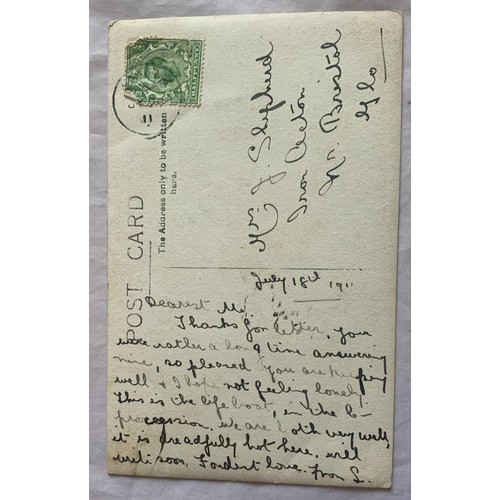 POST CARD
The Address only to be written
here.
HALFPENNY
11
Mrs. J. Shepherd
Iron Acton
Nr. Bristol
Glo
July 18th 1911
Dearest Me
Thanks for letter, you
were rather a long time answering
mine, so pleased you are keeping
well & I hope not feeling lonely
This is the lifeboat, in the C-
procession. we are both very well,
it is dreadfully hot here. will
write soon. Fondest love. from S.